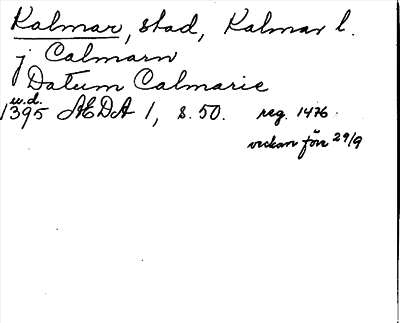 Kalmar, stad, Kalmar l.
j Calmarn
Datum Calmarie
u.d.
1395 ÆDA 1, s. 50. reg. 1476.
veckan före 29/9